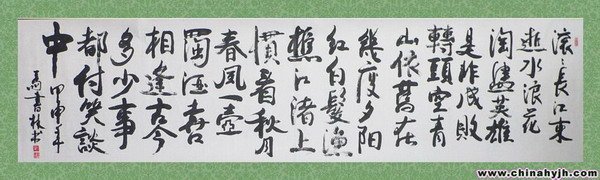 滚々長江東
逝水浪花
淘盡英雄
是非成敗
轉頭空青
山依舊在
幾度夕陽
紅白髮漁
樵江渚上
慣看秋月
春風一壺
濁酒喜
相逢古今
多少事
都付笑談
中
甲申年
書林
www.chinahyjh.com